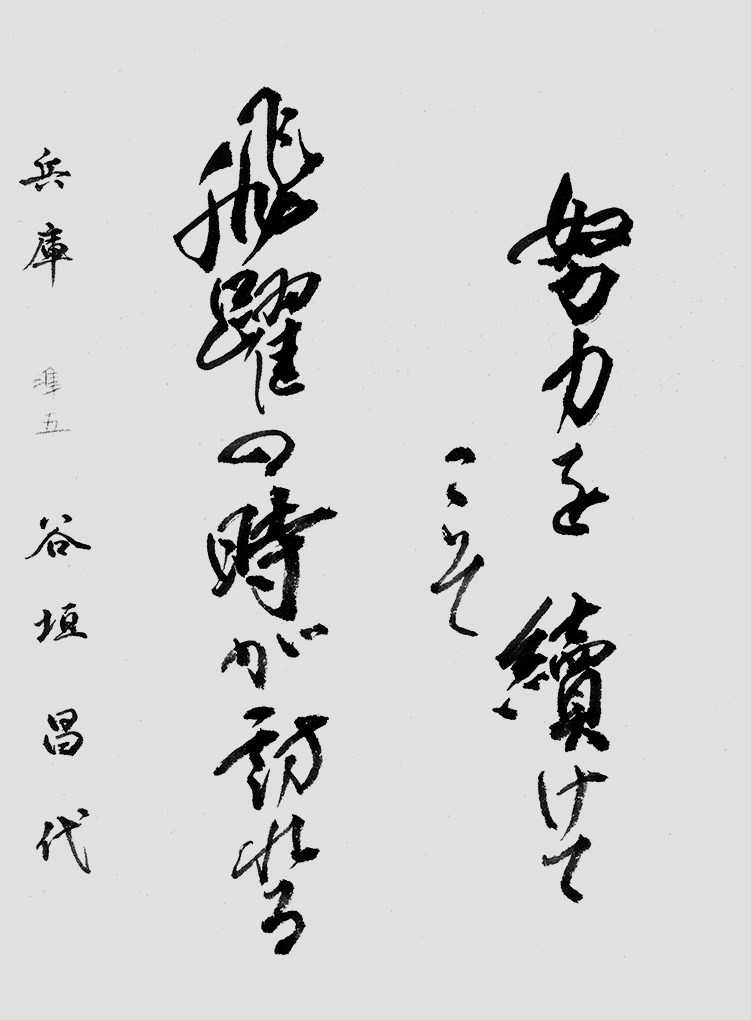 努力を續けて
こそ
飛躍の時が訪れる
兵庫 準五 谷垣昌代